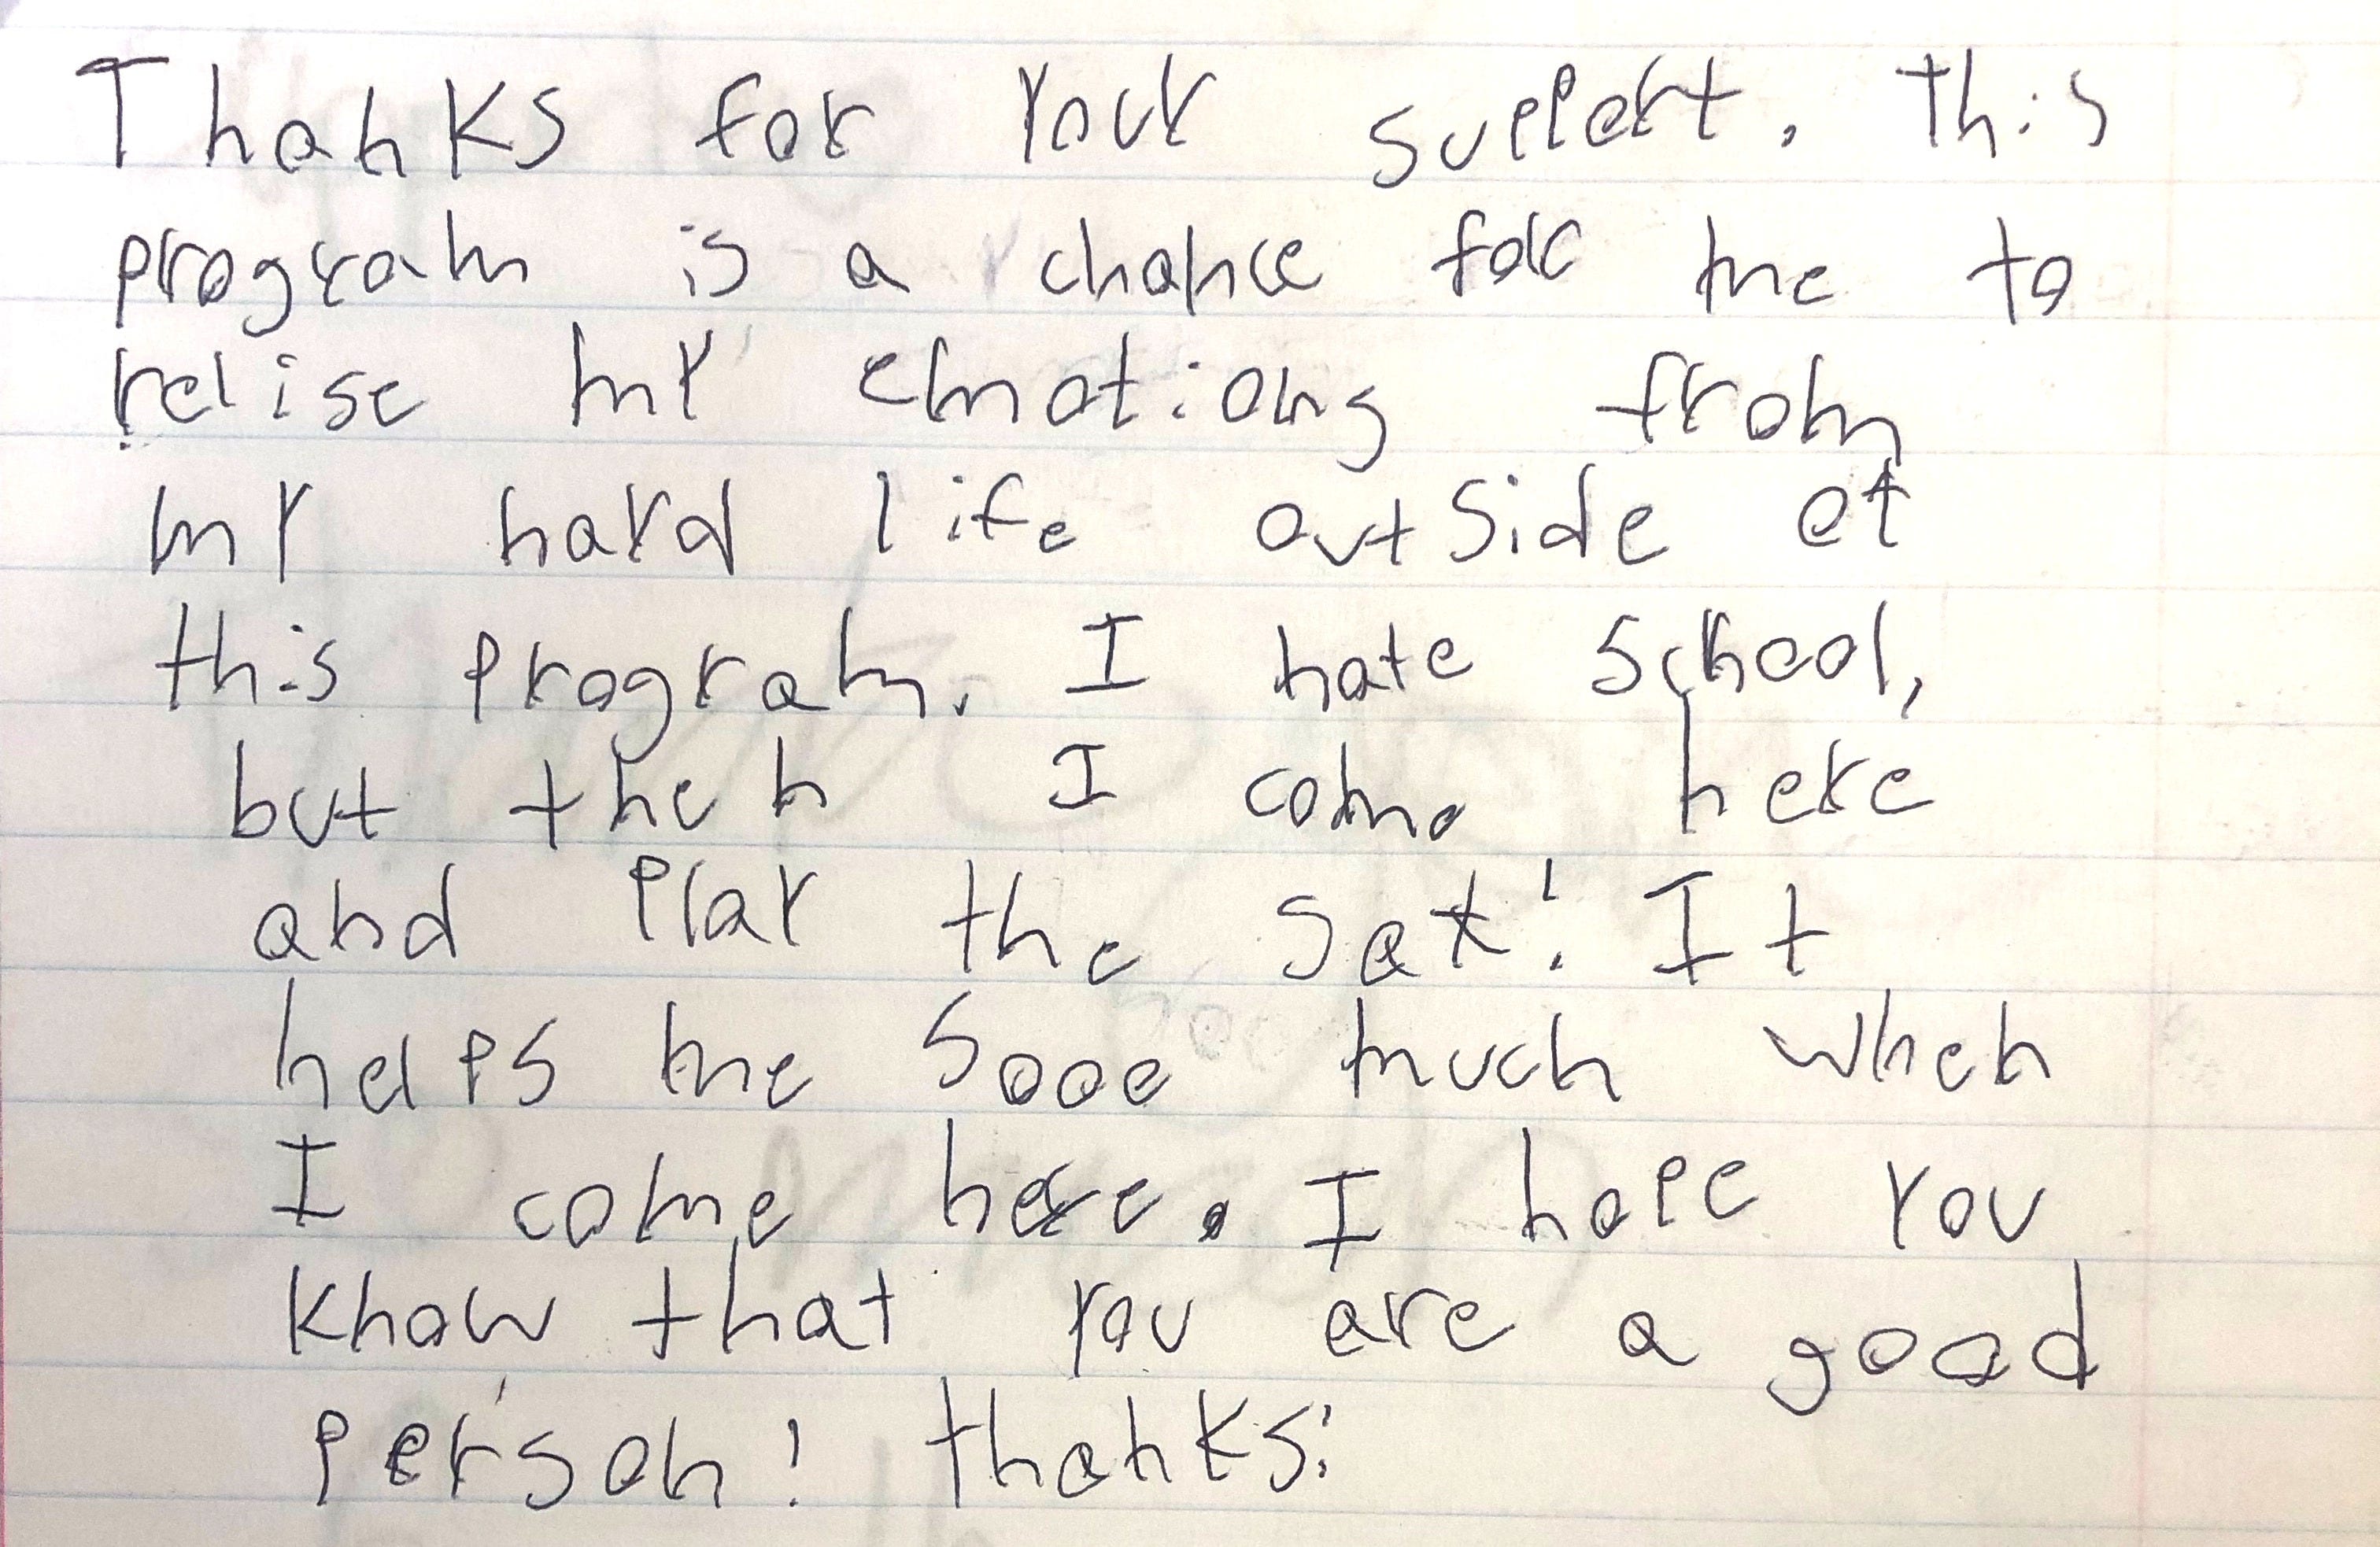 Thanks for your support. This
program is a chance for me to
relise my emotions from
my hard life outside of
this program. I hate school,
but then I come here
and play the sax! It
helps me sooo much when
I come here. I hope you
know that you are a good
person! thanks!